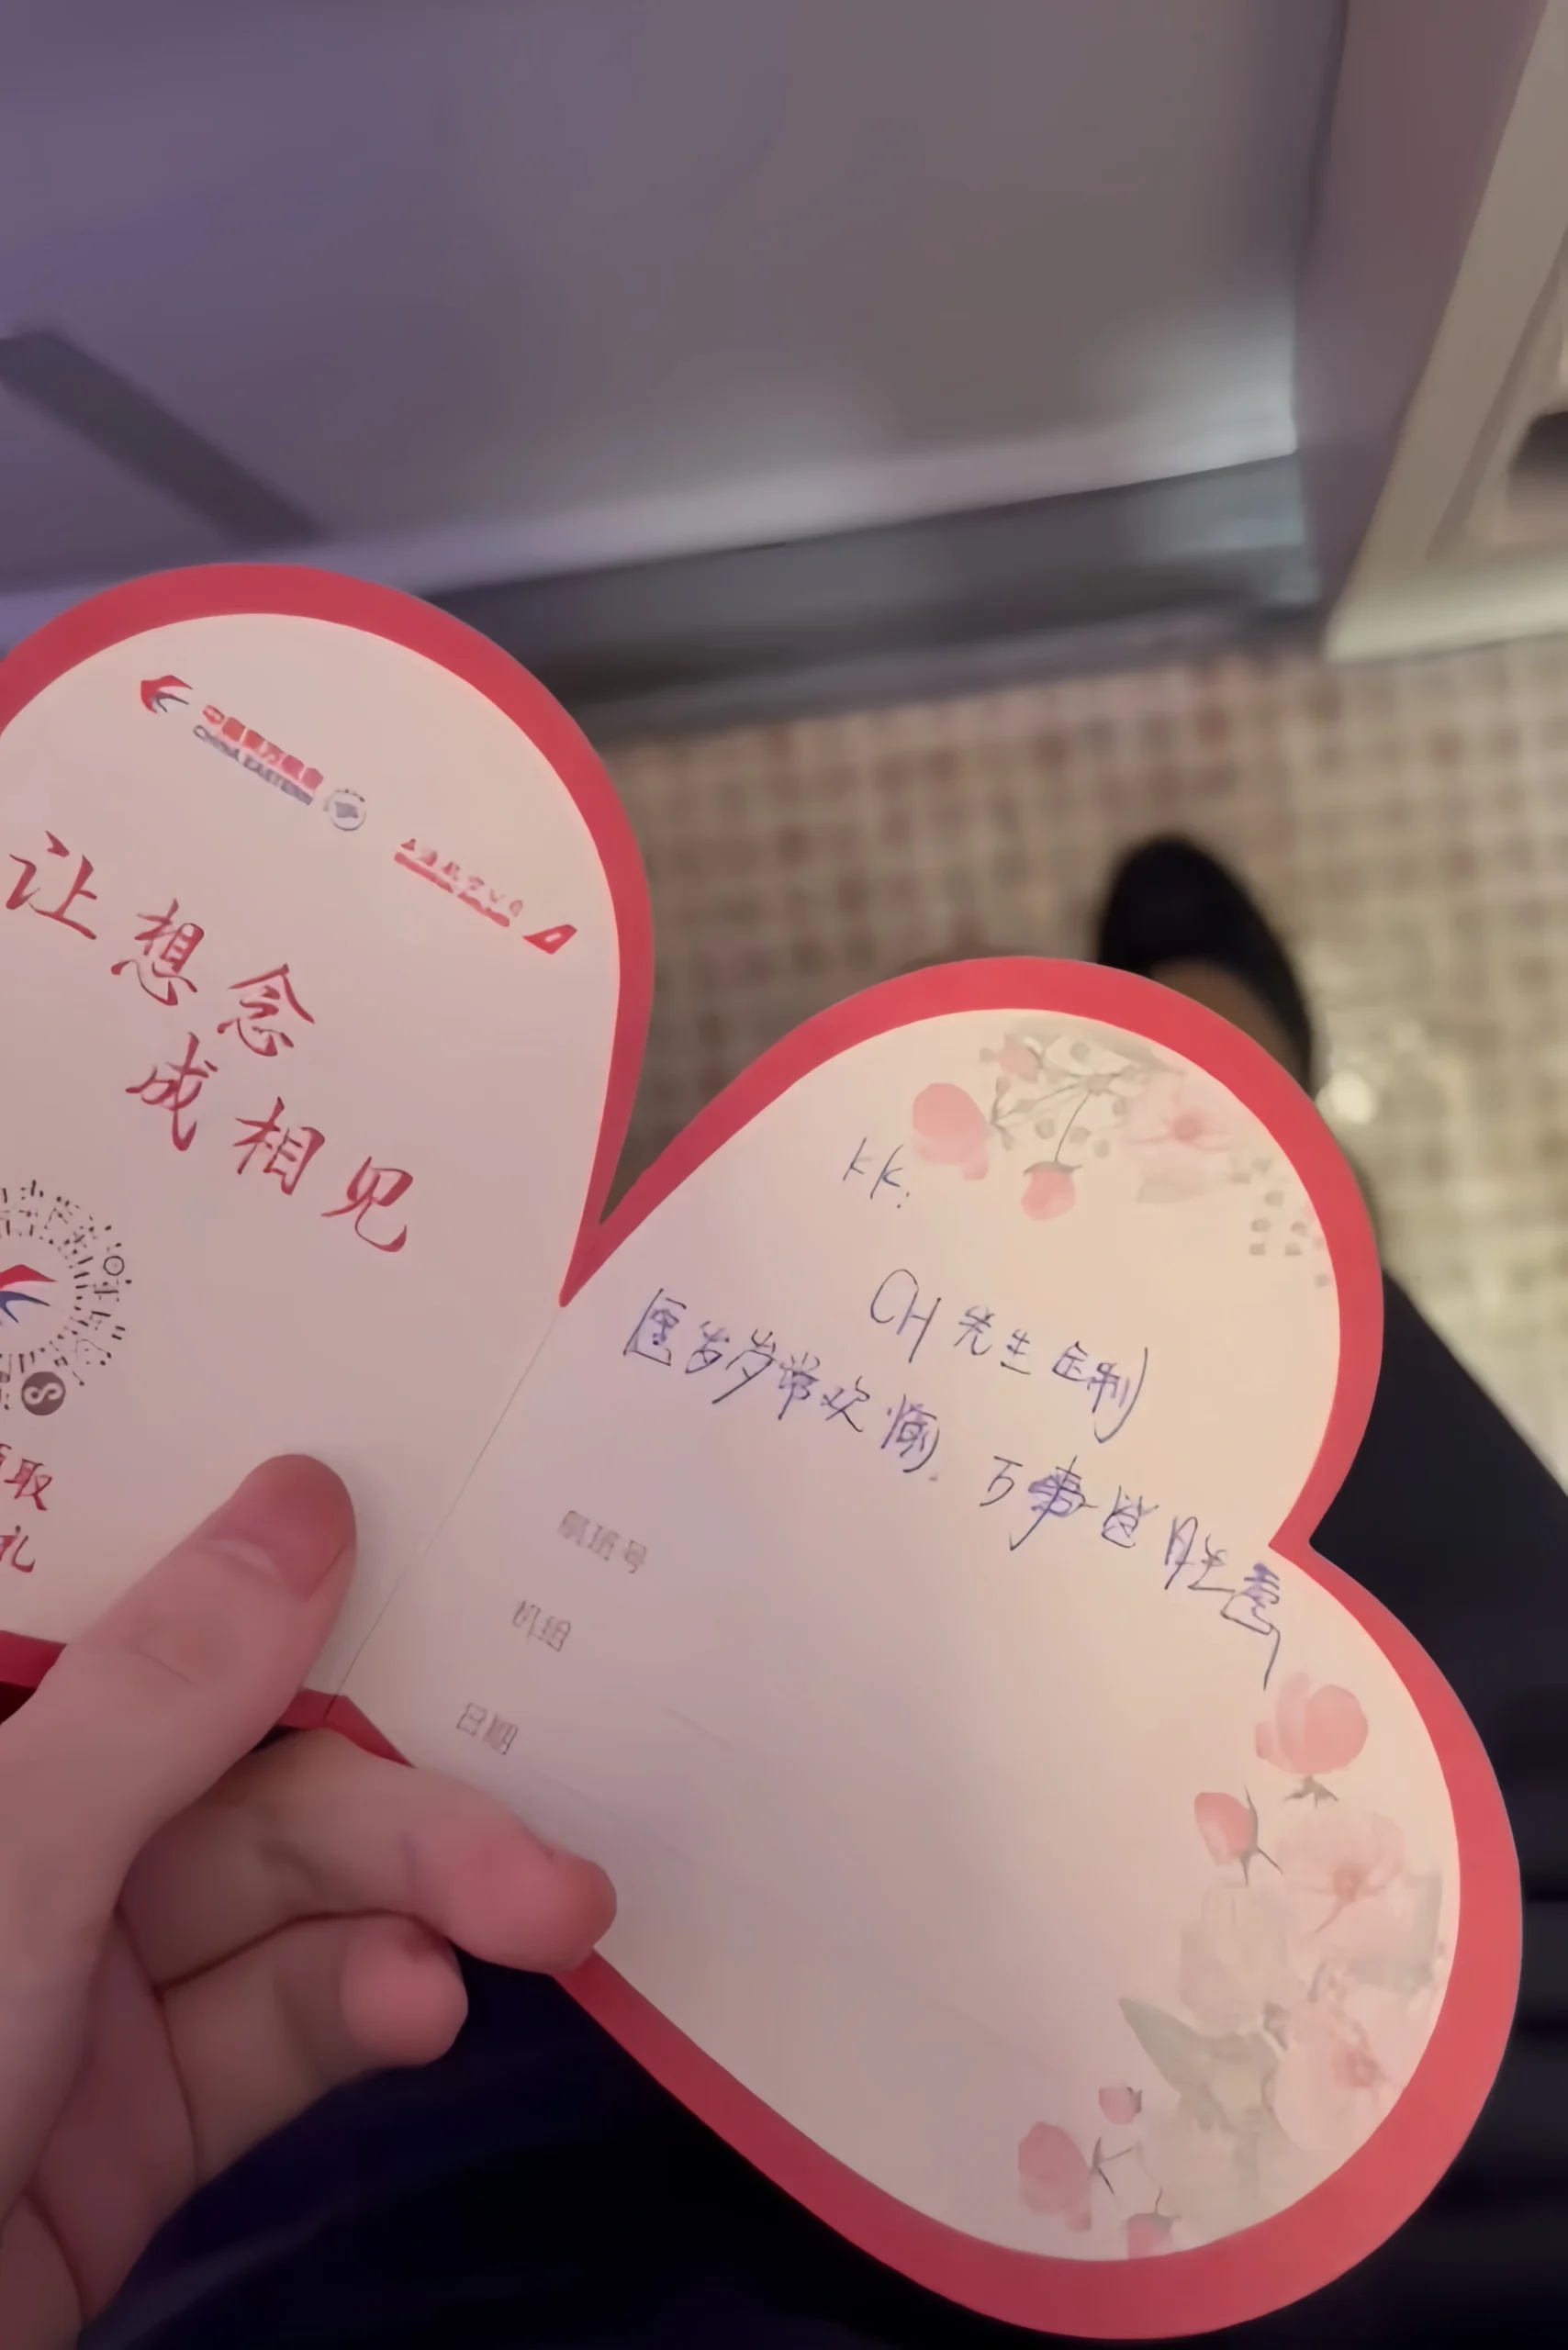 中国东方航空
CHINA EASTERN
让想念
成相见
取
礼
kk:
CH 先生 定制
岁岁常欢愉, 万事皆胜意
航班号
机组
日期